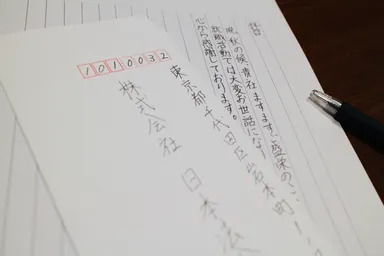 1010032
東京都千代田区岩本町
株式会社 日本
晩秋の候、貴社ますます
就職活動では大変お世話になり
心から感謝しております。